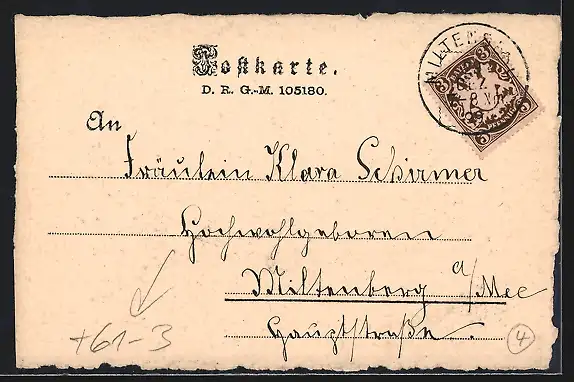 MILTENB
Postkarte.
D. R. G.-M. 105180.
An
Fräulein Klara Schirmer
Hochwohlgeboren
Miltenberg a/Mee
Hauptstraße.
+61-3
4